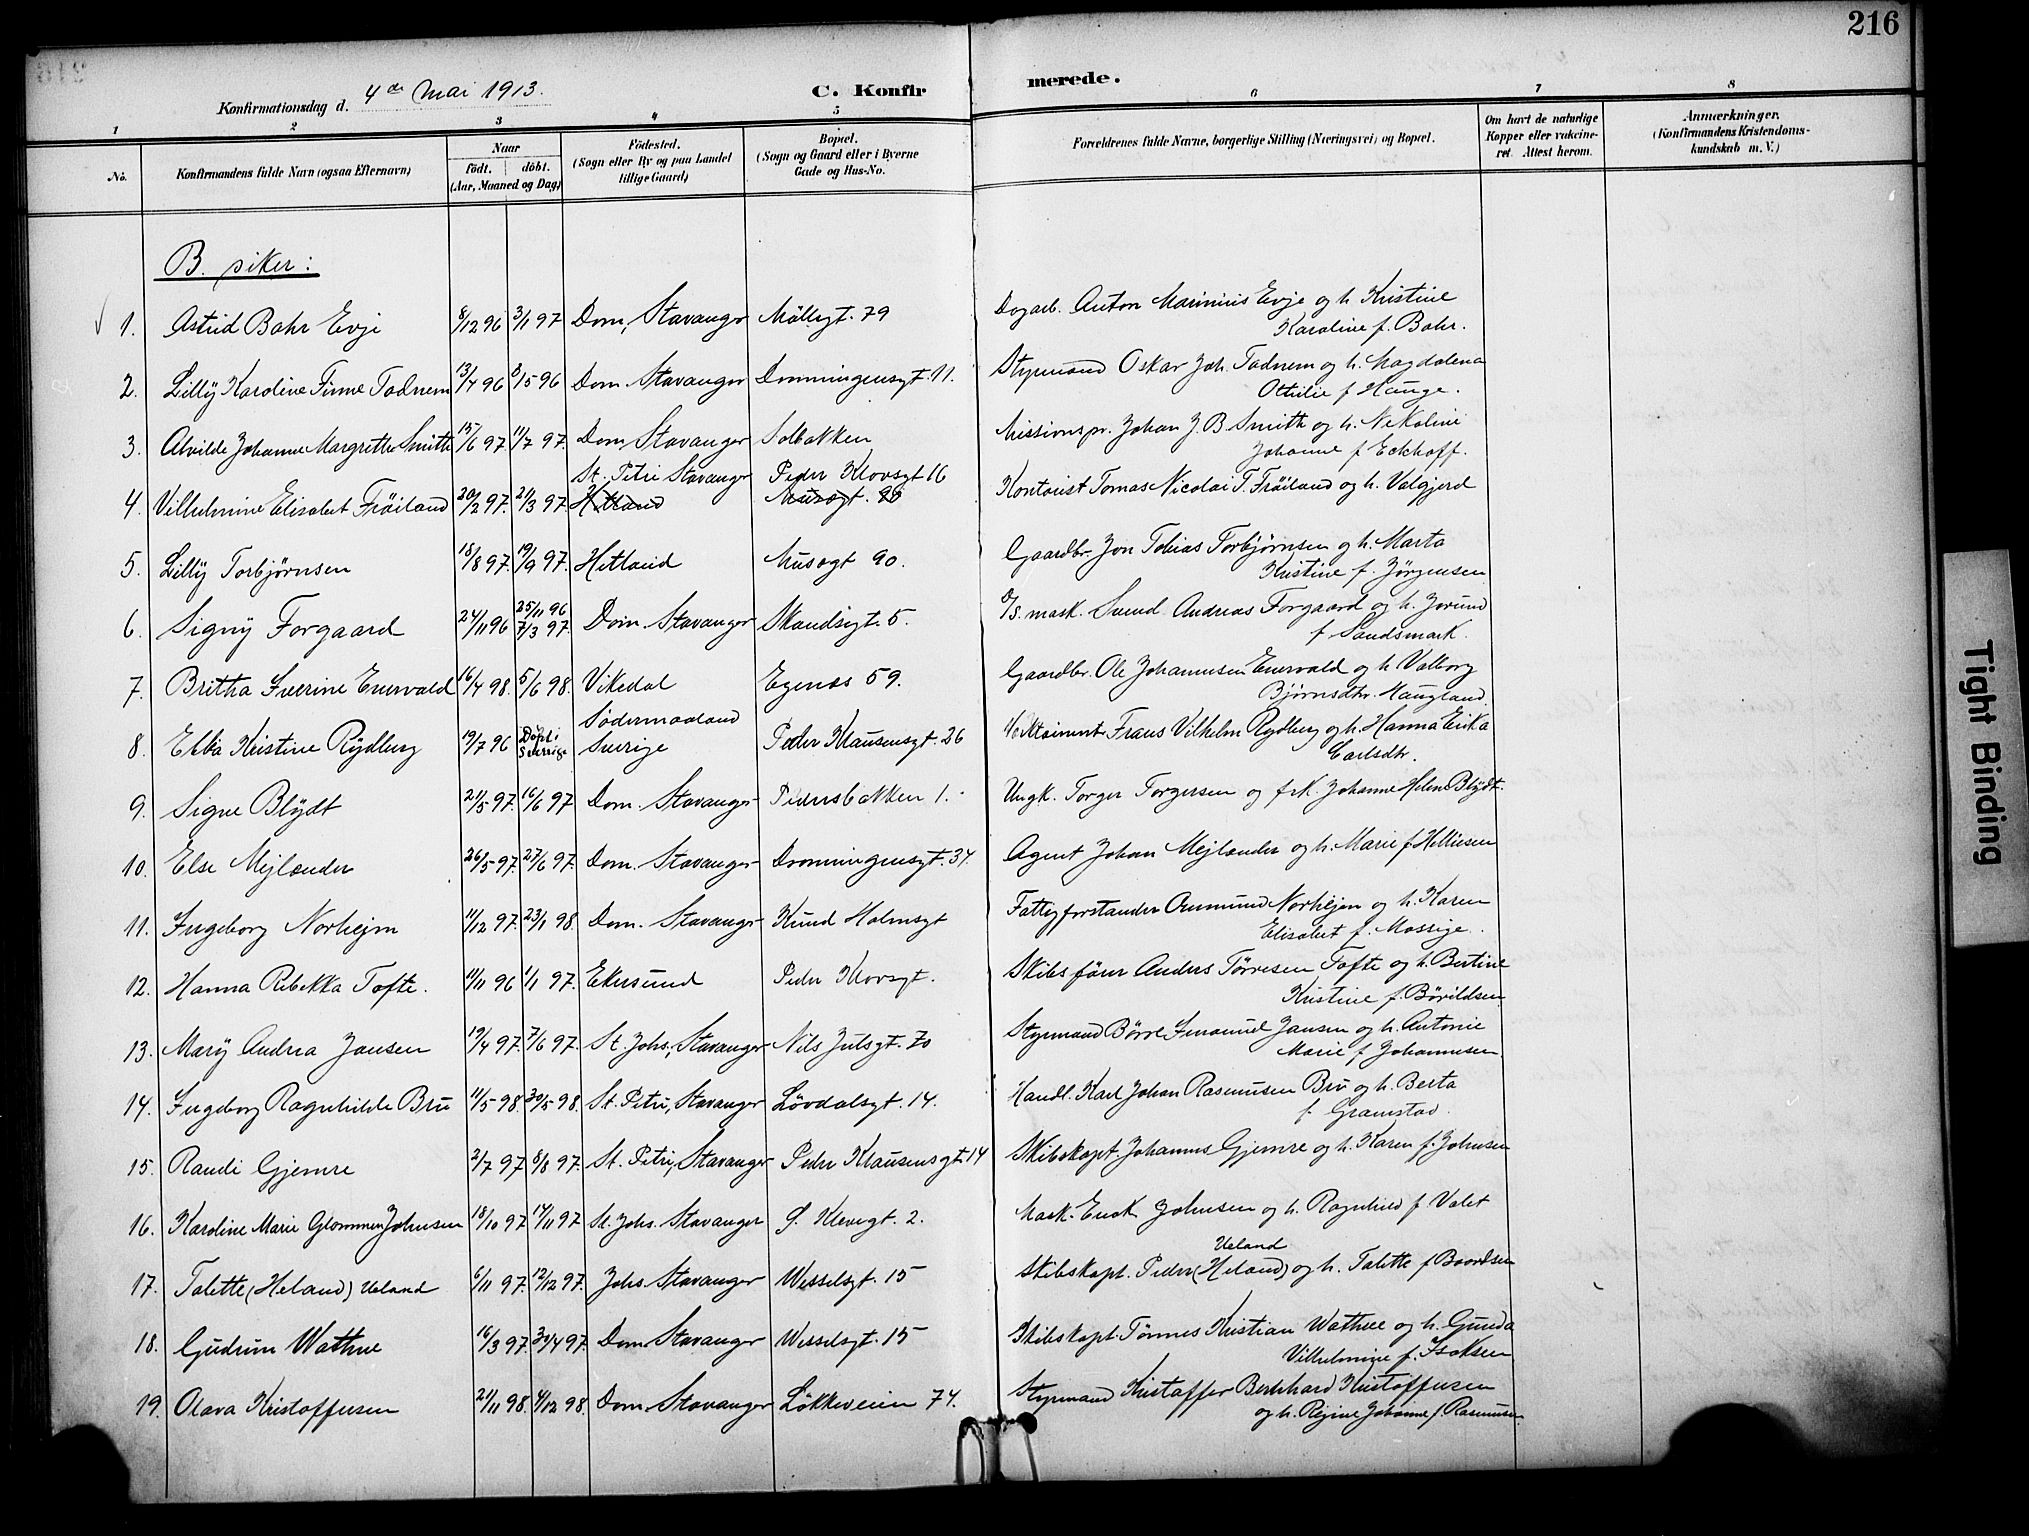 216
Konfirmationsdag d. 4de Mai 1913. C. Konfirmerede.
1 2 3 4 5 6 7 8
No. Konfirmandens fulde Navn (ogsaa Efternavn) Naar födt. döbt. (Aar, Maaned og Dag) Födested. (Sogn eller By og paa Landet tillige Gaard) Bopæl. (Sogn og Gaard eller i Byerne Gade og Hus-No. Forældrenes fulde Navne, borgerlige Stilling (Næringsvei) og Bopæl. Om havt de naturlige Kopper eller vakcineret. Attest herom. Anmærkninger. (Konfirmandens Kristendomskundskab m. V.)
B. piker:
1. Astrid Bahr Evje 8/12 96 3/1 97 Dom, Stavanger Möllegt. 79 Dagarb. Anton Marinius Evje og h. Kristine
Karoline f. Bahr.
2. Lilly Karoline Finne Tadnem 13/4 96 /5 96 Dom. Stavanger Dronningensgt. 11. Styrmand Oskar Joh. Tadnem og h. Magdalena
Othilie f Hauge.
3. Alvilde Johanne Margrethe Smith 15/6 97 11/7 97. Dom Stavanger Solbakken Missionspr. Johan J. B. Smith og h. Nekoline
Johanne f Eckhoff.
St. Petri Stavanger Peder Klovsgt 16
4. Vilhelmine Elisabet Fröiland 20/2 97. 21/3 97. Hetland Musegt. 90 Kontorist Tomas Nicolai T. Fröiland og h. Valgjerd
5. Lilly Torbjørnsen 18/8 97. 19/9 97. Hetland Musegt 90. Gaardbr. Jon Tobias Torbjørnsen og h. Marta
Kristine f. Jørgensen
6. Signy Forgaard 24/11 96 25/11 96 7/3 97. Dom. Stavanger Skandsegt. 5. mask. Svend Andreas Forgaard og h. Jorund
f Sandsmark.
7. Britha Severine Enervald 16/4 98. 5/6 98. Vikedal Egenæs 59. Gaardbr. Ole Johannesen Enervald og h Valborg
Bjørnsdtr. Haugland
Södermanland
8. Ebba Kristine Rydberg 19/7 96 Döpt i Sverige Sverige Peder Klausensgt. 26 Frans Vilhelm Rydberg og h. Hanna Erika
Carlsdtr.
9. Signe Blydt 21/5 97. 16/6 97 Dom. Stavanger Pedersbakken 1. Ungk. Torger Torgersen og frk. Johanne Helene Blydt.
10. Else Mejlænder 26/5 97. 27/6 97. Dom. Stavanger Dronningensgt. 34. Agent Johan Mejlænder og h. Marie f Helliesen
11. Ingeborg Norhejm 11/12 97. 23/1 98. Dom. Stavanger Knud Holmsgt Fattigforstander Aumund Norhejm og h. Karen
Elisabet f. Mossige.
12. Hanna Rebekka Tofte. 11/11 96 1/1 97. Ekersund Peder Klovsgt. Skibsförer Anders Törresen Tofte og h. Bertine
Kristine f. Börildsen
13. Mary Andrea Jansen 19/4 97. 7/6 97. St. Johs, Stavanger Nils Julsgt. 70 Styrmand Börre Emanuel Jansen og h. Antonie
Marie f Johannesen
14. Ingeborg Ragnhilde Bru 11/5 98. 30/5 98. St. Petri, Stavanger Lövdalsgt. 14. Handl. Karl Johan Rasmussen Bru og h. Berta
f. Gramstad.
15. Randi Gjemre 2/7 97 8/8 97. St. Petri, Stavanger Peder Klausensgt 14 Skibskapt. Johannes Gjemre og h. Karen f. Johnsen
16. Karoline Marie Glommen Johnsen 18/10 97 14/11 97 St. Johs. Stavanger S. Klevegt. 2. Mask. Enok Johnsen og h. Ragnhild f Valet
Ueland
17. Talette (Heland) Ueland 6/11 97. 12/12 97. Johs Stavanger Wesselsgt. 15 Skibskapt. Peder (Heland) og h. Talette f Baardsen
18. Gudrun Wathne 16/3 97. 30/4 97. Dom Stavanger Wesselsgt. 15 Skibskapt. Tönnes Kristian Wathne og h. Gunda
Vilhelmine f. Isaksen
19. Olava Kristoffersen 21/11 98. 4/12 98. Dom. Stavanger Lökkeveien 74. Styrmand Kristoffer Bernhard Kristoffersen
og h. Regine Johanne f. Rasmussen
Tight Binding